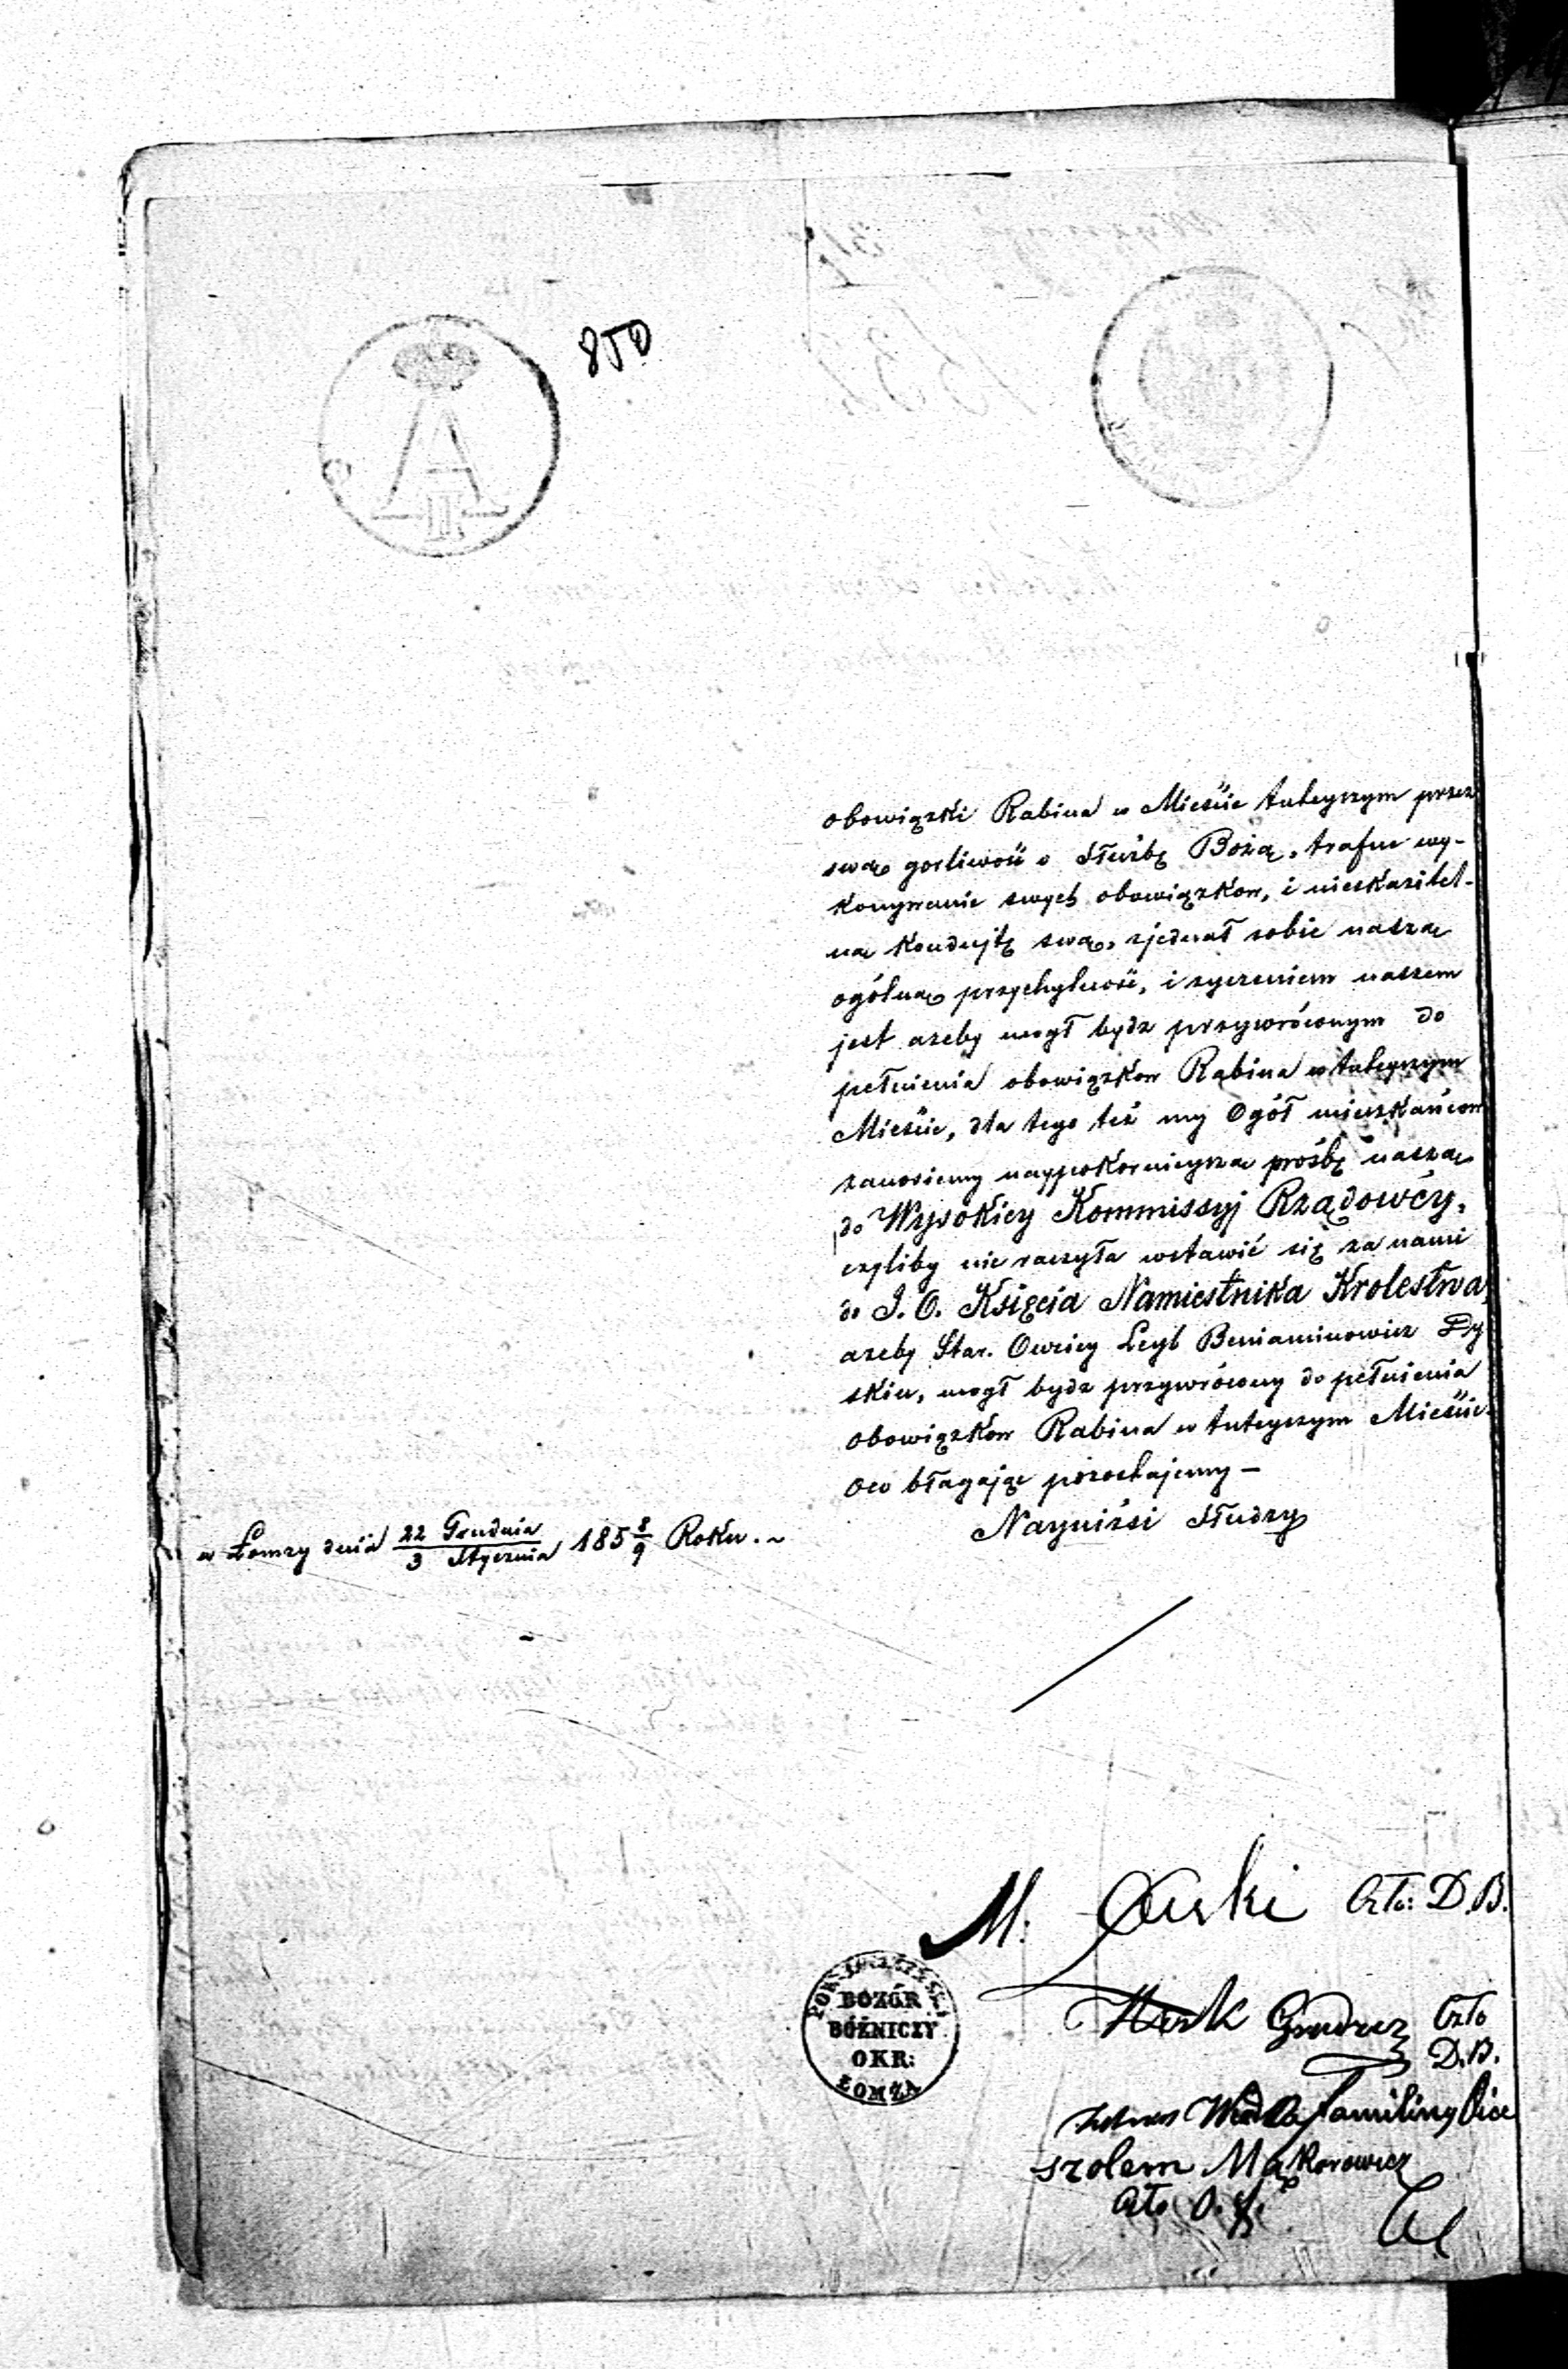 850
A
II
obowiązki Rabina w Mieście tuteyszym przez
swą gorliwość o Służbę Bożą, trafne wy-
konywanie swych obowiązkow, i nieskazitel-
ną kondujtę swą, zjednał sobie naszą
ogólną przychylność, i zyczeniem naszem
jest azeby mogł bydz przywróconym do
pełnienia obowiązkow Rabina w tuteyszym
Mieście, dla tego też my Ogół mieszkańcow
zanosiemy naypokornieyszą prośbę naszą
do Wysokiey Kommissyj Rządowéy,
czyliby nie raczyła wstawić się za nami
do J. O. Księcia Namiestnika Krolestwa,
azeby Star. Owziey Leyb Beniaminowicz Dy
skin, mogł bydz przywrócony do pełnienia
obowiązkow Rabina w tuteyszym Mieście.
oco błagając pozostajemy –
Nayniżsi Słudzy
w Łomzy dnia 22 Grudnia / 3 Stycznia 185 8/9 Roku. ~
M. Czło: D.B.
Czło
D.B.
DOZÓR
BÓŻNICZY
OKR:
ŁOMŻA
szolem Mąkorowicz
Czło